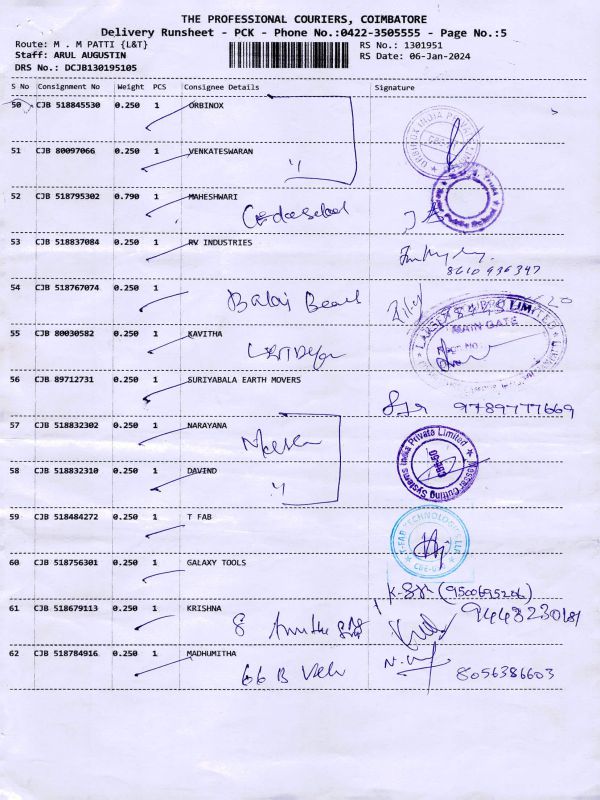 THE PROFESSIONAL COURIERS, COIMBATORE
Delivery Runsheet - PCK - Phone No.:0422-3505555 - Page No.:5
Route: M . M PATTI {L&T}
RS No.: 1301951
Staff: ARUL AUGUSTIN
RS Date: 06-Jan-2024
DRS No.: DCJB130195105
S No Consignment No Weight PCS Consignee Details Signature
50 CJB 518845530 0.250 1 ORBINOX
51 CJB 80097066 0.250 1 VENKATESWARAN
52 CJB 518795302 0.790 1 MAHESHWARI
53 CJB 518837084 0.250 1 RV INDUSTRIES
8610 936347
54 CJB 518767074 0.250 1
Balaj
55 CJB 80030582 0.250 1 KAVITHA
MAIN GATE
56 CJB 89712731 0.250 1 SURIYABALA EARTH MOVERS
9789777669
57 CJB 518832302 0.250 1 NARAYANA
Kesar Cutting Systems India Private Limited
58 CJB 518832310 0.250 1 DAVIND
59 CJB 518484272 0.250 1 T FAB
60 CJB 518756301 0.250 1 GALAXY TOOLS
(9500695206)
61 CJB 518679113 0.250 1 KRISHNA
62 CJB 518784916 0.250 1 MADHUMITHA
66 B
8056386603